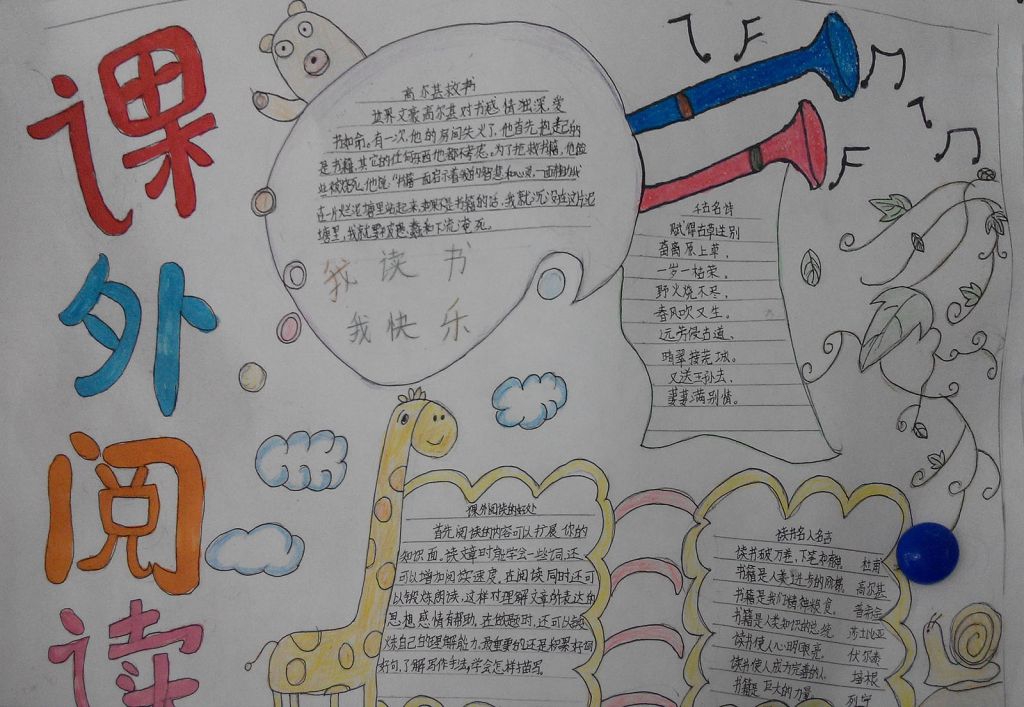 课外阅读
高尔基救书
世界文豪高尔基对书感情独深，爱
书如命。有一次，他的房间失火了，他首先抱起的
是书籍，其它的任何东西他都不考虑。为了抢救书籍，他险
些被烧死。他说：“书籍一面启示着我的智慧和心灵，一面帮助我
在一片烂泥塘里站起来，如果不是书籍的话，我就沉没在这片泥
塘里，我就要被愚蠢和下流淹死。
我读书
我快乐
千古名诗
赋得古草送别
离离原上草，
一岁一枯荣。
野火烧不尽，
春风吹又生。
远芳侵古道，
晴翠接荒城。
又送王孙去，
萋萋满别情。
课外阅读的好处
首先阅读的内容可以扩展你的
知识面。读文章时能学会一些词，还
可以增加阅读速度，在阅读同时还可
以锻炼朗读，这样对理解文章所表达的
思想感情有帮助，在做题时，还可以锻
炼自己的理解能力。最重要的还是积累好词
好句，了解写作手法，学会怎样描写。
读书名人名言
读书破万卷，下笔如有神。 杜甫
书籍是人类进步的阶梯。 高尔基
书籍是我们精神粮食。 普希金
书籍是人类知识的总统。 莎士比亚
读书使人心明眼亮。 伏尔泰
读书使人成为完善的人。 培根
书籍是巨大的力量。 列宁